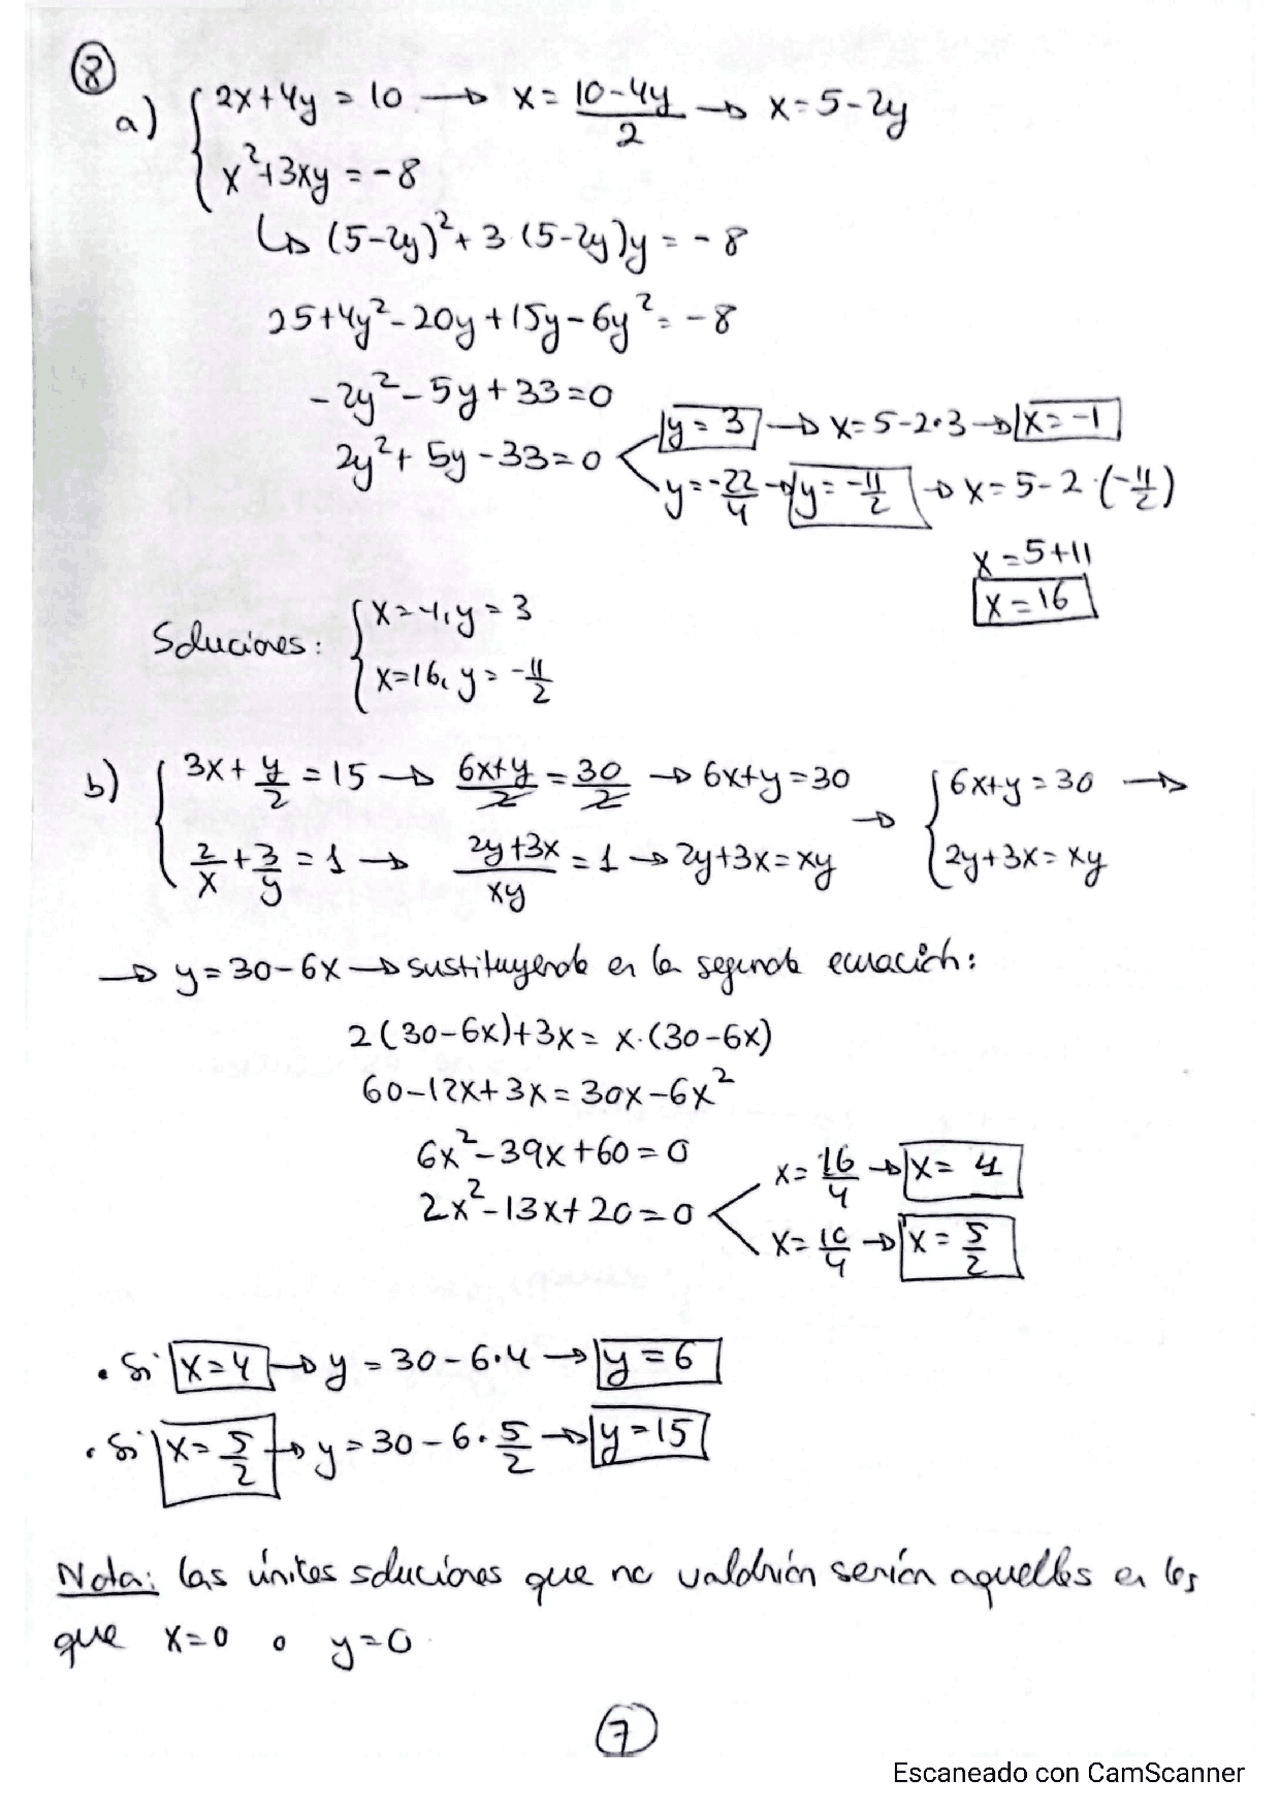 8
a) { 2x+4y = 10 → x = (10-4y)/2 → x = 5-2y
x²+3xy = -8
↳ (5-2y)² + 3·(5-2y)y = -8
25+4y²-20y+15y-6y² = -8
-2y²-5y+33=0
2y²+5y-33=0 < y = 3 → x = 5-2·3 → x = -1
y = -22/4 → y = -11/2 → x = 5-2·(-11/2)
x = 5+11
x = 16
Soluciones: { x=-1, y = 3
x=16, y = -11/2
b) { 3x + y/2 = 15 → (6x+y)/2 = 30/2 → 6x+y = 30 → { 6x+y = 30 →
2/x + 3/y = 1 → (2y+3x)/xy = 1 → 2y+3x = xy { 2y+3x = xy
→ y = 30-6x → sustituyendo en la segunda ecuación:
2(30-6x)+3x = x·(30-6x)
60-12x+3x = 30x-6x²
6x²-39x+60 = 0
2x²-13x+20 = 0 < x = 16/4 → x = 4
x = 10/4 → x = 5/2
• Si x=4 → y = 30-6·4 → y = 6
• Si x = 5/2 → y = 30-6·5/2 → y = 15
Nota: las únicas soluciones que no valdrían serían aquellas en las
que x=0 o y=0
7
Escaneado con CamScanner